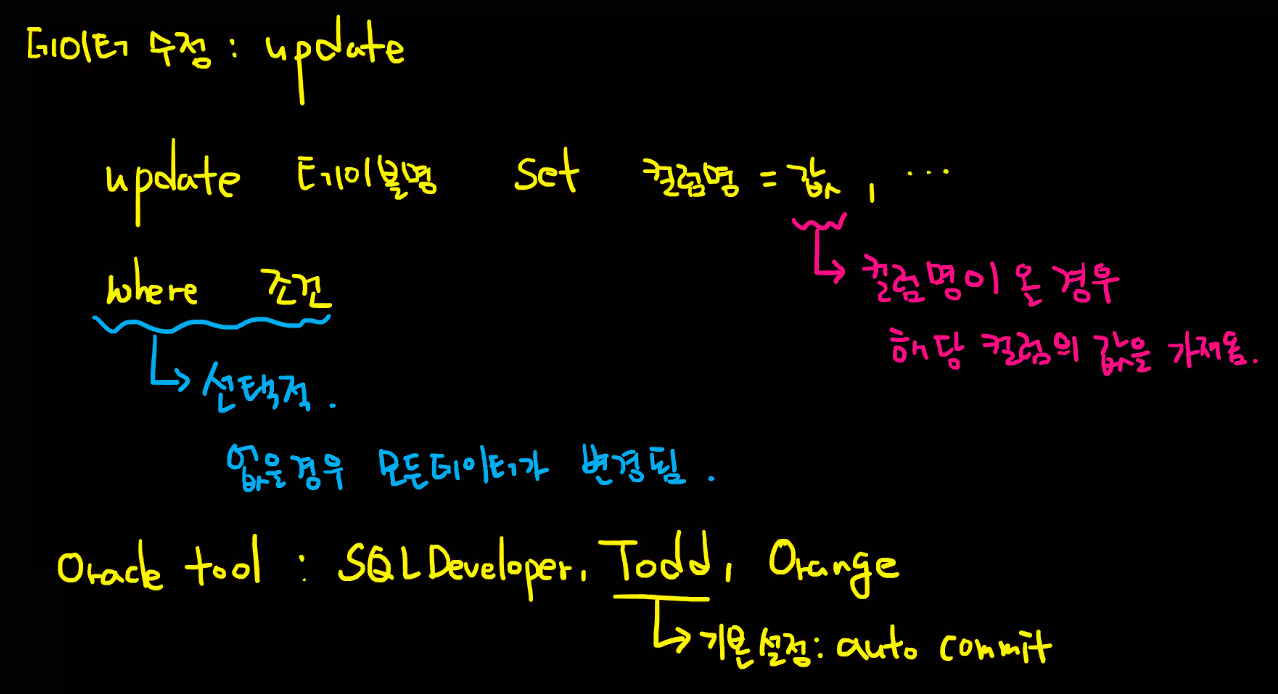 데이터 수정 : update
update 테이블명 set 컬럼명 = 값, ...
→ 컬럼명이 온 경우
해당 컬럼의 값을 가져옴.
where 조건
→ 선택적.
없을경우 모든데이터가 변경됨.
Oracle tool : SQLDeveloper, Todd, Orange
→ 기본설정: auto commit